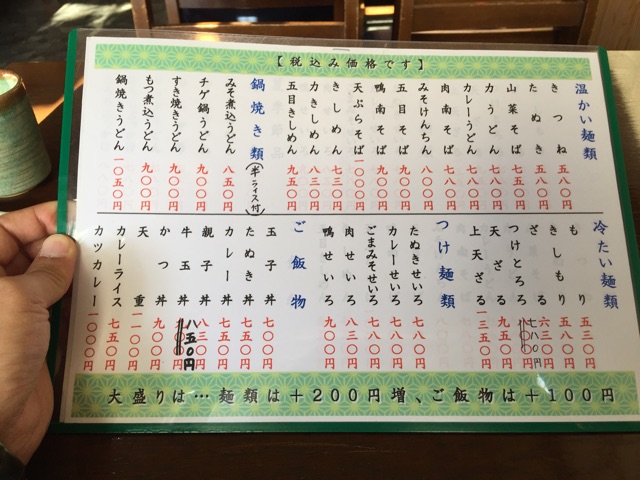 【税込み価格です】
温かい麺類
きつね 五八〇円
たぬき 五八〇円
山菜そば
力うどん
カレーうどん 七八〇円
肉南そば 七八〇円
みそけんちん 八〇〇円
五目そば 九〇〇円
鴨南そば 九〇〇円
天ぷらそば 一〇〇〇円
きしめん 七三〇円
力きしめん 八三〇円
五目きしめん 九五〇円
鍋焼き類(半ライス付)
みそ煮込うどん 八五〇円
チゲ鍋うどん 九〇〇円
すき焼きうどん 九〇〇円
もつ煮込うどん 九〇〇円
鍋焼きうどん 一〇五〇円
冷たい麺類
もり 五三〇円
きしもり 五八〇円
ざる 六三〇円
つけとろろ 七八〇円
天ざる 九五〇円
上天ざる 一三五〇円
つけ麺類
たぬきせいろ 七八〇円
カレーせいろ 七八〇円
ごまみそせいろ 七八〇円
肉せいろ 八三〇円
鴨せいろ 九〇〇円
ご飯物
玉子丼 七〇〇円
たぬき丼 七五〇円
カレー丼 七五〇円
親子丼 八三〇円
牛玉丼 八五〇円
かつ丼 九〇〇円
天重 一一〇〇円
カレーライス 七五〇円
カツカレー 一〇〇〇円
大盛りは…麺類は+200円増、ご飯物は+100円